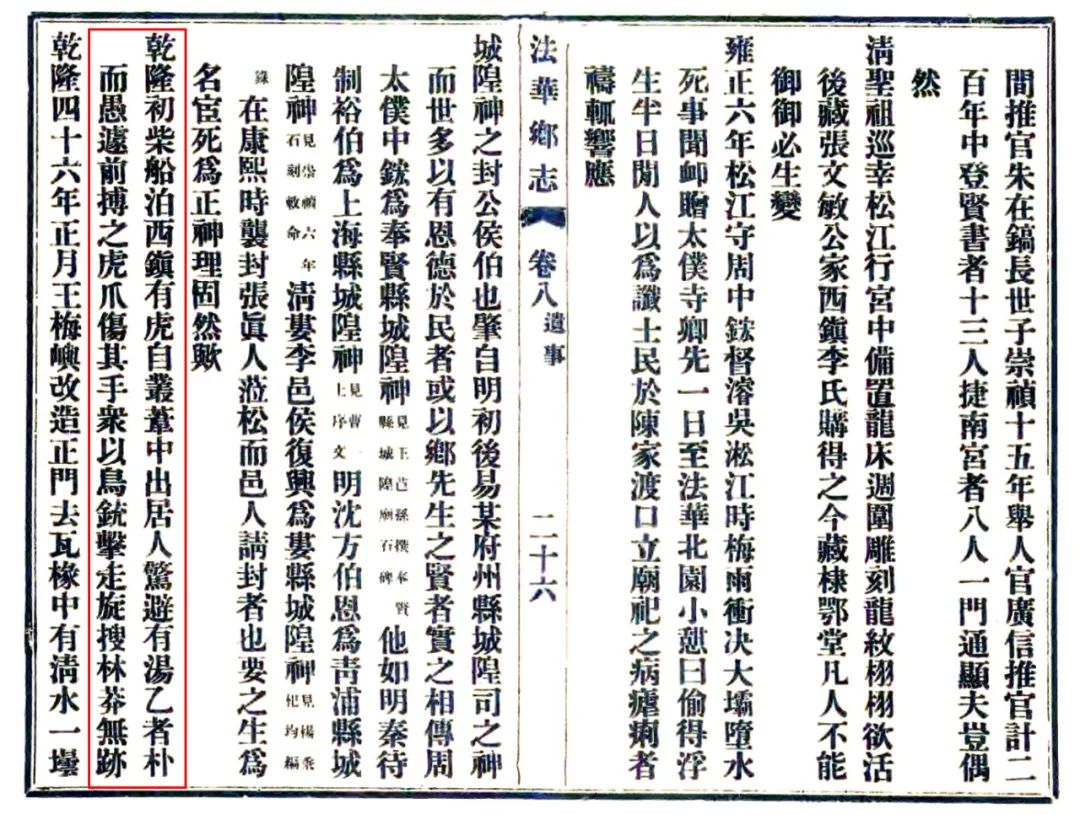 間推官朱在鎬長世子崇禎十五年舉人官廣信推官計二
百年中登賢書者十三人捷南宮者八人一門通顯夫豈偶
然
淸聖祖巡幸松江行宮中備置龍床週圍雕刻龍紋栩栩欲活
後藏張文敏公家西鎮李氏購得之今藏棣鄂堂凡人不能
御御必生變
雍正六年松江守周中鋐督濬吳淞江時梅雨衝决大壩墮水
死事聞卹贈太僕寺卿先一日至法華北園小憩曰偷得浮
生半日閒人以爲讖士民於陳家渡口立廟祀之病瘧痢者
禱輒響應
法華鄉志 卷八 遺事 二十六
城隍神之封公侯伯也肇自明初後易某府州縣城隍司之神
而世多以有恩德於民者或以鄉先生之賢者實之相傳周
太僕中鋐爲奉賢縣城隍神見王芑孫撰奉賢縣城隍廟石碑他如明秦待
制裕伯爲上海縣城隍神見曹一士序文明沈方伯恩爲靑浦縣城
隍神見崇禎六年石刻敕命淸婁李邑侯復興爲婁縣城隍神見楊秉杷均編
錄在康熙時襲封張眞人蒞松而邑人請封者也要之生爲
名宦死爲正神理固然歟
乾隆初柴船泊西鎮有虎自叢葦中出居人驚避有湯乙者朴
而愚遽前搏之虎爪傷其手衆以鳥銃擊走旋搜林莽無跡
乾隆四十六年正月王梅嶼改造正門去瓦椽中有淸水一壜